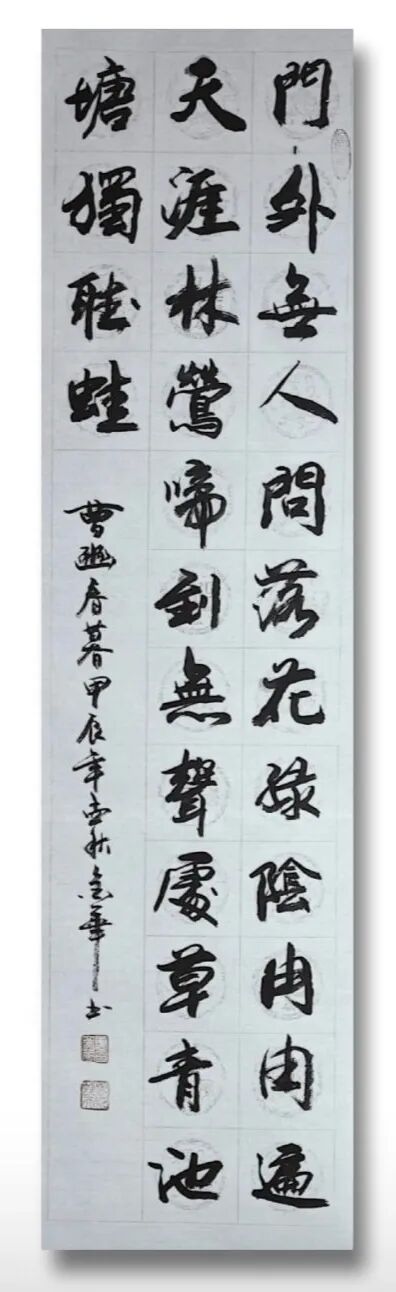 門外無人問落花綠陰冉冉遍
天涯林鶯啼到無聲處草青池
塘獨聽蛙
曹豳春暮甲辰年孟秋金華書